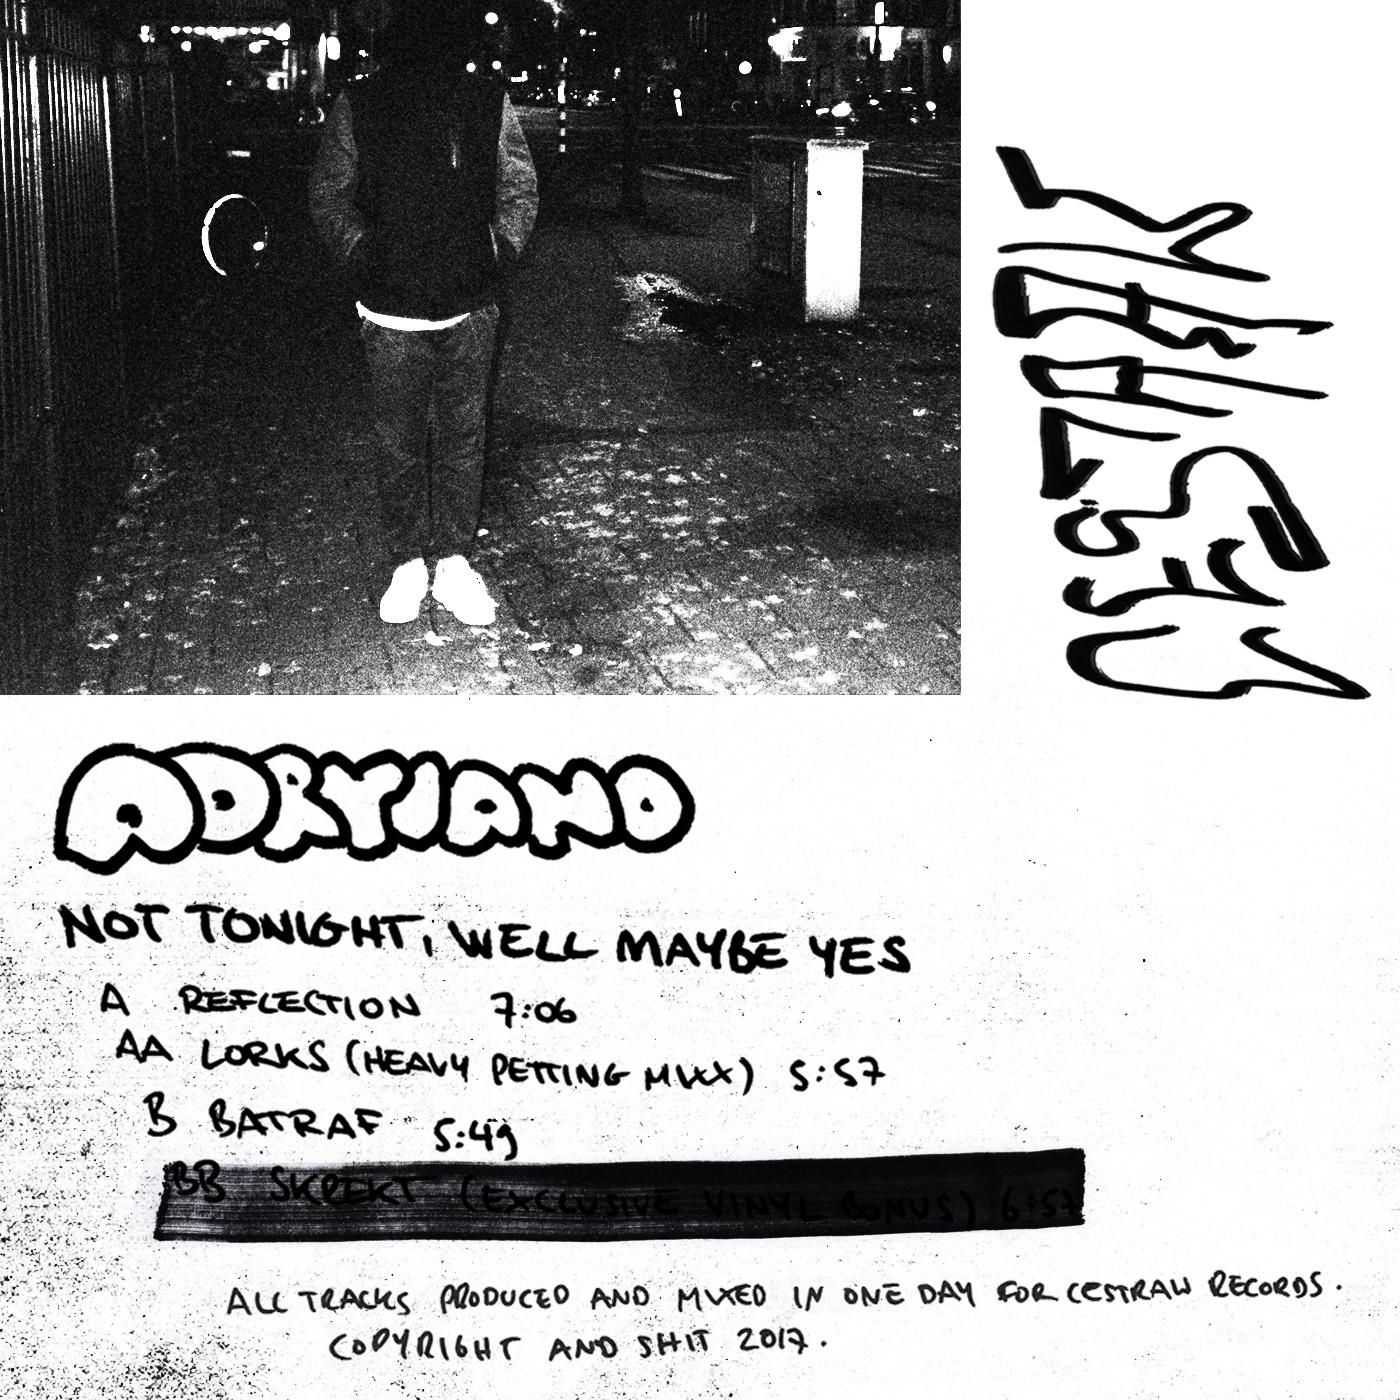 ADRYIANO
NOT TONIGHT, WELL MAYBE YES
A REFLECTION 7:06
AA LORKS (HEAVY PETTING MIXX) 5:57
B BATRAF 5:49
BB SKREKT (EXCLUSIVE VINYL BONUS) 6:57
ALL TRACKS PRODUCED AND MIXED IN ONE DAY FOR CESTRAW RECORDS.
COPYRIGHT AND SHIT 2017.